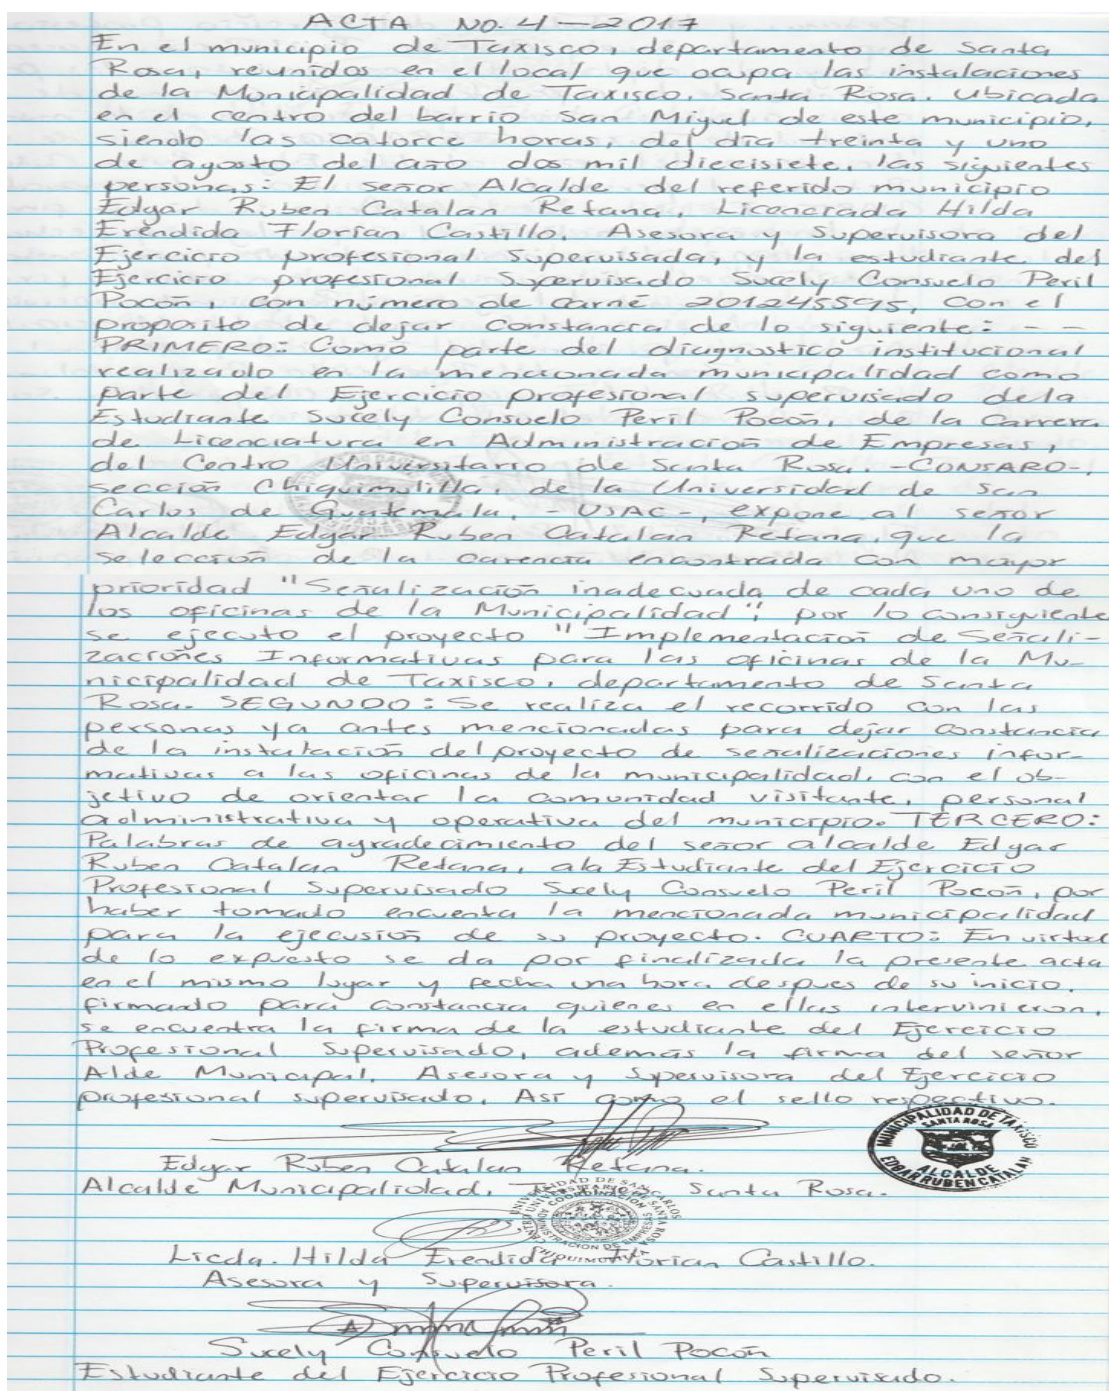 ACTA No. 4-2017
En el municipio de Taxisco, departamento de Santa
Rosa, reunidos en el local que ocupa las instalaciones
de la Municipalidad de Taxisco, Santa Rosa. Ubicada
en el centro del barrio San Miguel de este municipio,
siendo las catorce horas, del día treinta y uno
de agosto del año dos mil diecisiete, las siguientes
personas: El señor Alcalde del referido municipio
Edgar Ruben Catalan Retana, Licenciada Hilda
Eréndida Florian Castillo, Asesora y Supervisora del
Ejercicio profesional Supervisada, y la estudiante del
Ejercicio profesional Supervisado Sucely Consuelo Peril
Pocón, con número de carné 201245595, con el
proposito de dejar constancia de lo siguiente: - -
PRIMERO: Como parte del diagnostico institucional
realizado en la mencionada municipalidad como
parte del Ejercicio profesional supervisado dela
Estudiante Sucely Consuelo Peril Pocón, de la Carrera
de Licenciatura en Administración de Empresas,
del Centro Universitario de Santa Rosa. -CUNSARO-,
sección Chiquimulilla, de la Universidad de San
Carlos de Guatemala, -USAC-, expone al señor
Alcalde Edgar Ruben Catalan Retana, que la
selección de la carencia encontrada con mayor
prioridad "Señalización inadecuada de cada uno de
los oficinas de la Municipalidad", por lo consiguiente
se ejecuto el proyecto "Implementación de Señali-
zaciones Informativas para las oficinas de la Mu-
nicipalidad de Taxisco, departamento de Santa
Rosa. SEGUNDO: Se realiza el recorrido con las
personas ya antes mencionadas para dejar constancia
de la instalación del proyecto de señalizaciones infor-
mativas a las oficinas de la municipalidad, con el ob-
jetivo de orientar la comunidad visitante, personal
administrativa y operativa del municipio. TERCERO:
Palabras de agradecimiento del señor alcalde Edgar
Ruben Catalan Retana, ala Estudiante del Ejercicio
Profesional Supervisado Sucely Consuelo Peril Pocón, por
haber tomado encuenta la mencionada municipalidad
para la ejecusión de su proyecto. CUARTO: En virtud
de lo expuesto se da por finalizada la presente acta
en el mismo lugar y fecha una hora despues de su inicio,
firmando para constancia quienes en ellas intervinieron,
se encuentra la firma de la estudiante del Ejercicio
Profesional Supervisado, además la firma del señor
Alde Municipal, Asesora y Supervisora del Ejercicio
profesional supervisado, Así como el sello respectivo.
MUNICIPALIDAD DE TAXISCO
SANTA ROSA
ALCALDE
EDGAR RUBEN CATALAN
Edgar Ruben Catalan Retana.
Alcalde Municipalidad, Santa Rosa.
UNIVERSIDAD DE SAN CARLOS
COORDINACION
Licda. Hilda Erendida Florian Castillo.
Asesora y Supervisora.
Sucely Consuelo Peril Pocón
Estudiante del Ejercicio Profesional Supervisado.